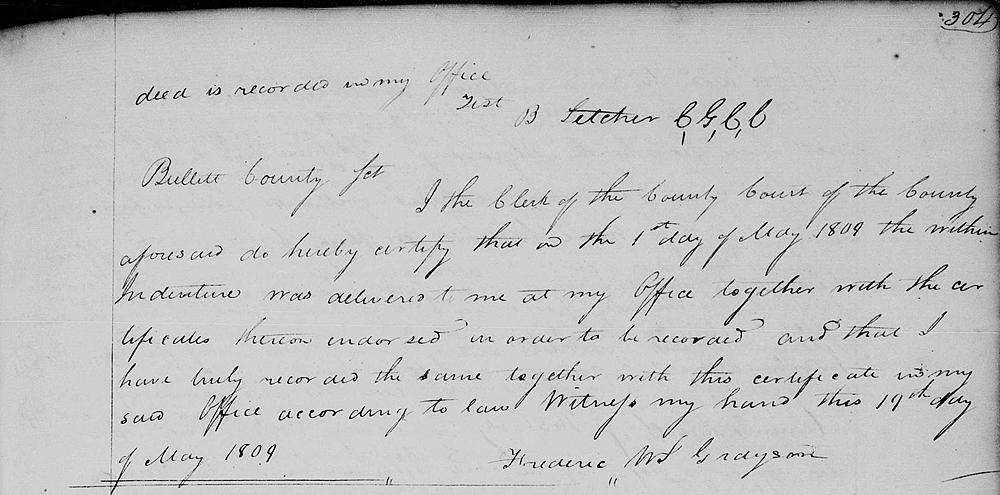 304
deed is recorded in my Office
Test
B Letcher C, G, C, C
Bullitt County Sct
I the Clerk of the County Court of the County
aforesaid do hereby certify that on the 1st day of May 1809 the within
Indenture was delivered to me at my Office together with the cer
tificates thereon endorsed in order to be recorded and that I
have truly recorded the same together with this certificate in my
said Office according to law Witness my hand this 19th day
of May 1809
Frederic WS Grayson